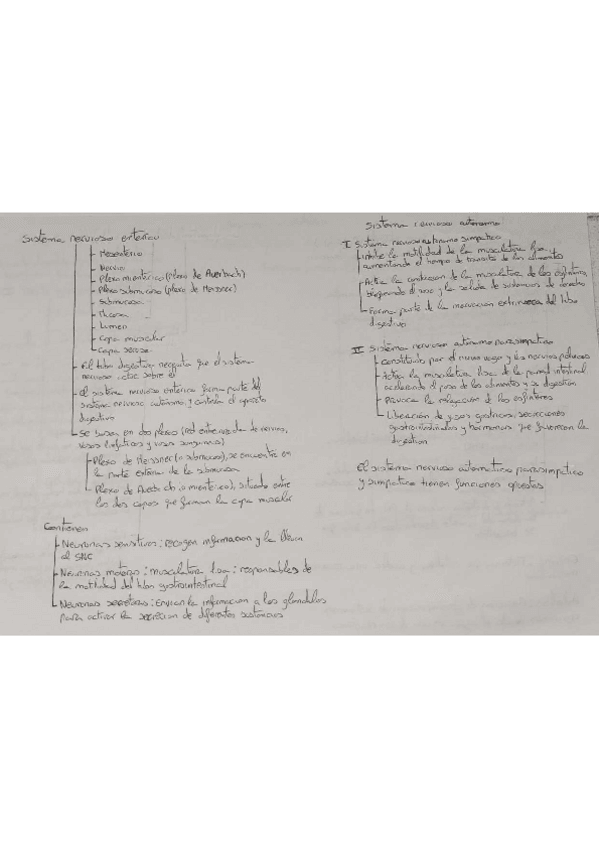 Sistema nervioso entérico
Mesenterio
Nervio
Plexo mientérico (plexo de Auerbach)
Plexo submucoso (plexo de Meissner)
Submucosa
Mucosa
Lumen
Capa muscular
Capa serosa
El tubo digestivo necesita que el sistema
nervioso actúe sobre él
El sistema nervioso entérico forma parte del
sistema nervioso autónomo, y controla el aparato
digestivo
Se basa en dos plexos (red entrecruzada de nervios,
vasos linfáticos y vasos sanguíneos)
Plexo de Meissner (o submucoso), se encuentra en
la parte externa de la submucosa
Plexo de Auerbach (o mientérico), situado entre
las dos capas que forman la capa muscular
Contienen
Neuronas sensitivas: recogen informacion y la llevan
al SNC
Neuronas motoras: musculatura lisa: responsables de
la motilidad del tubo gastrointestinal
Neuronas secretoras: Envian la informacion a las glándulas
para activar la secrecion de diferentes sustancias
Sistema nervioso autonomo
I Sistema nervioso autónomo simpatico
Inhibe la motilidad de la musculatura lisa,
aumentando el tiempo de transito de los alimentos
Activa la contraccion de la musculatura de los esfínteres,
y la salida de sustancias
Forma parte de la inervacion extrínseca del tubo
digestivo
II Sistema nervioso autónomo parasimpatico
Constituido por el nervio vago y los nervios pélvicos
Activa la musculatura lisa de la pared intestinal
acelerando el paso de los alimentos y su digestión
Provoca la relajacion de los esfínteres
Liberación de jugos gastricos, secreciones
gastrointestinales y hormonas que favorecen la
digestion
El sistema nervioso parasimpatico
y simpatico tienen funciones opuestas